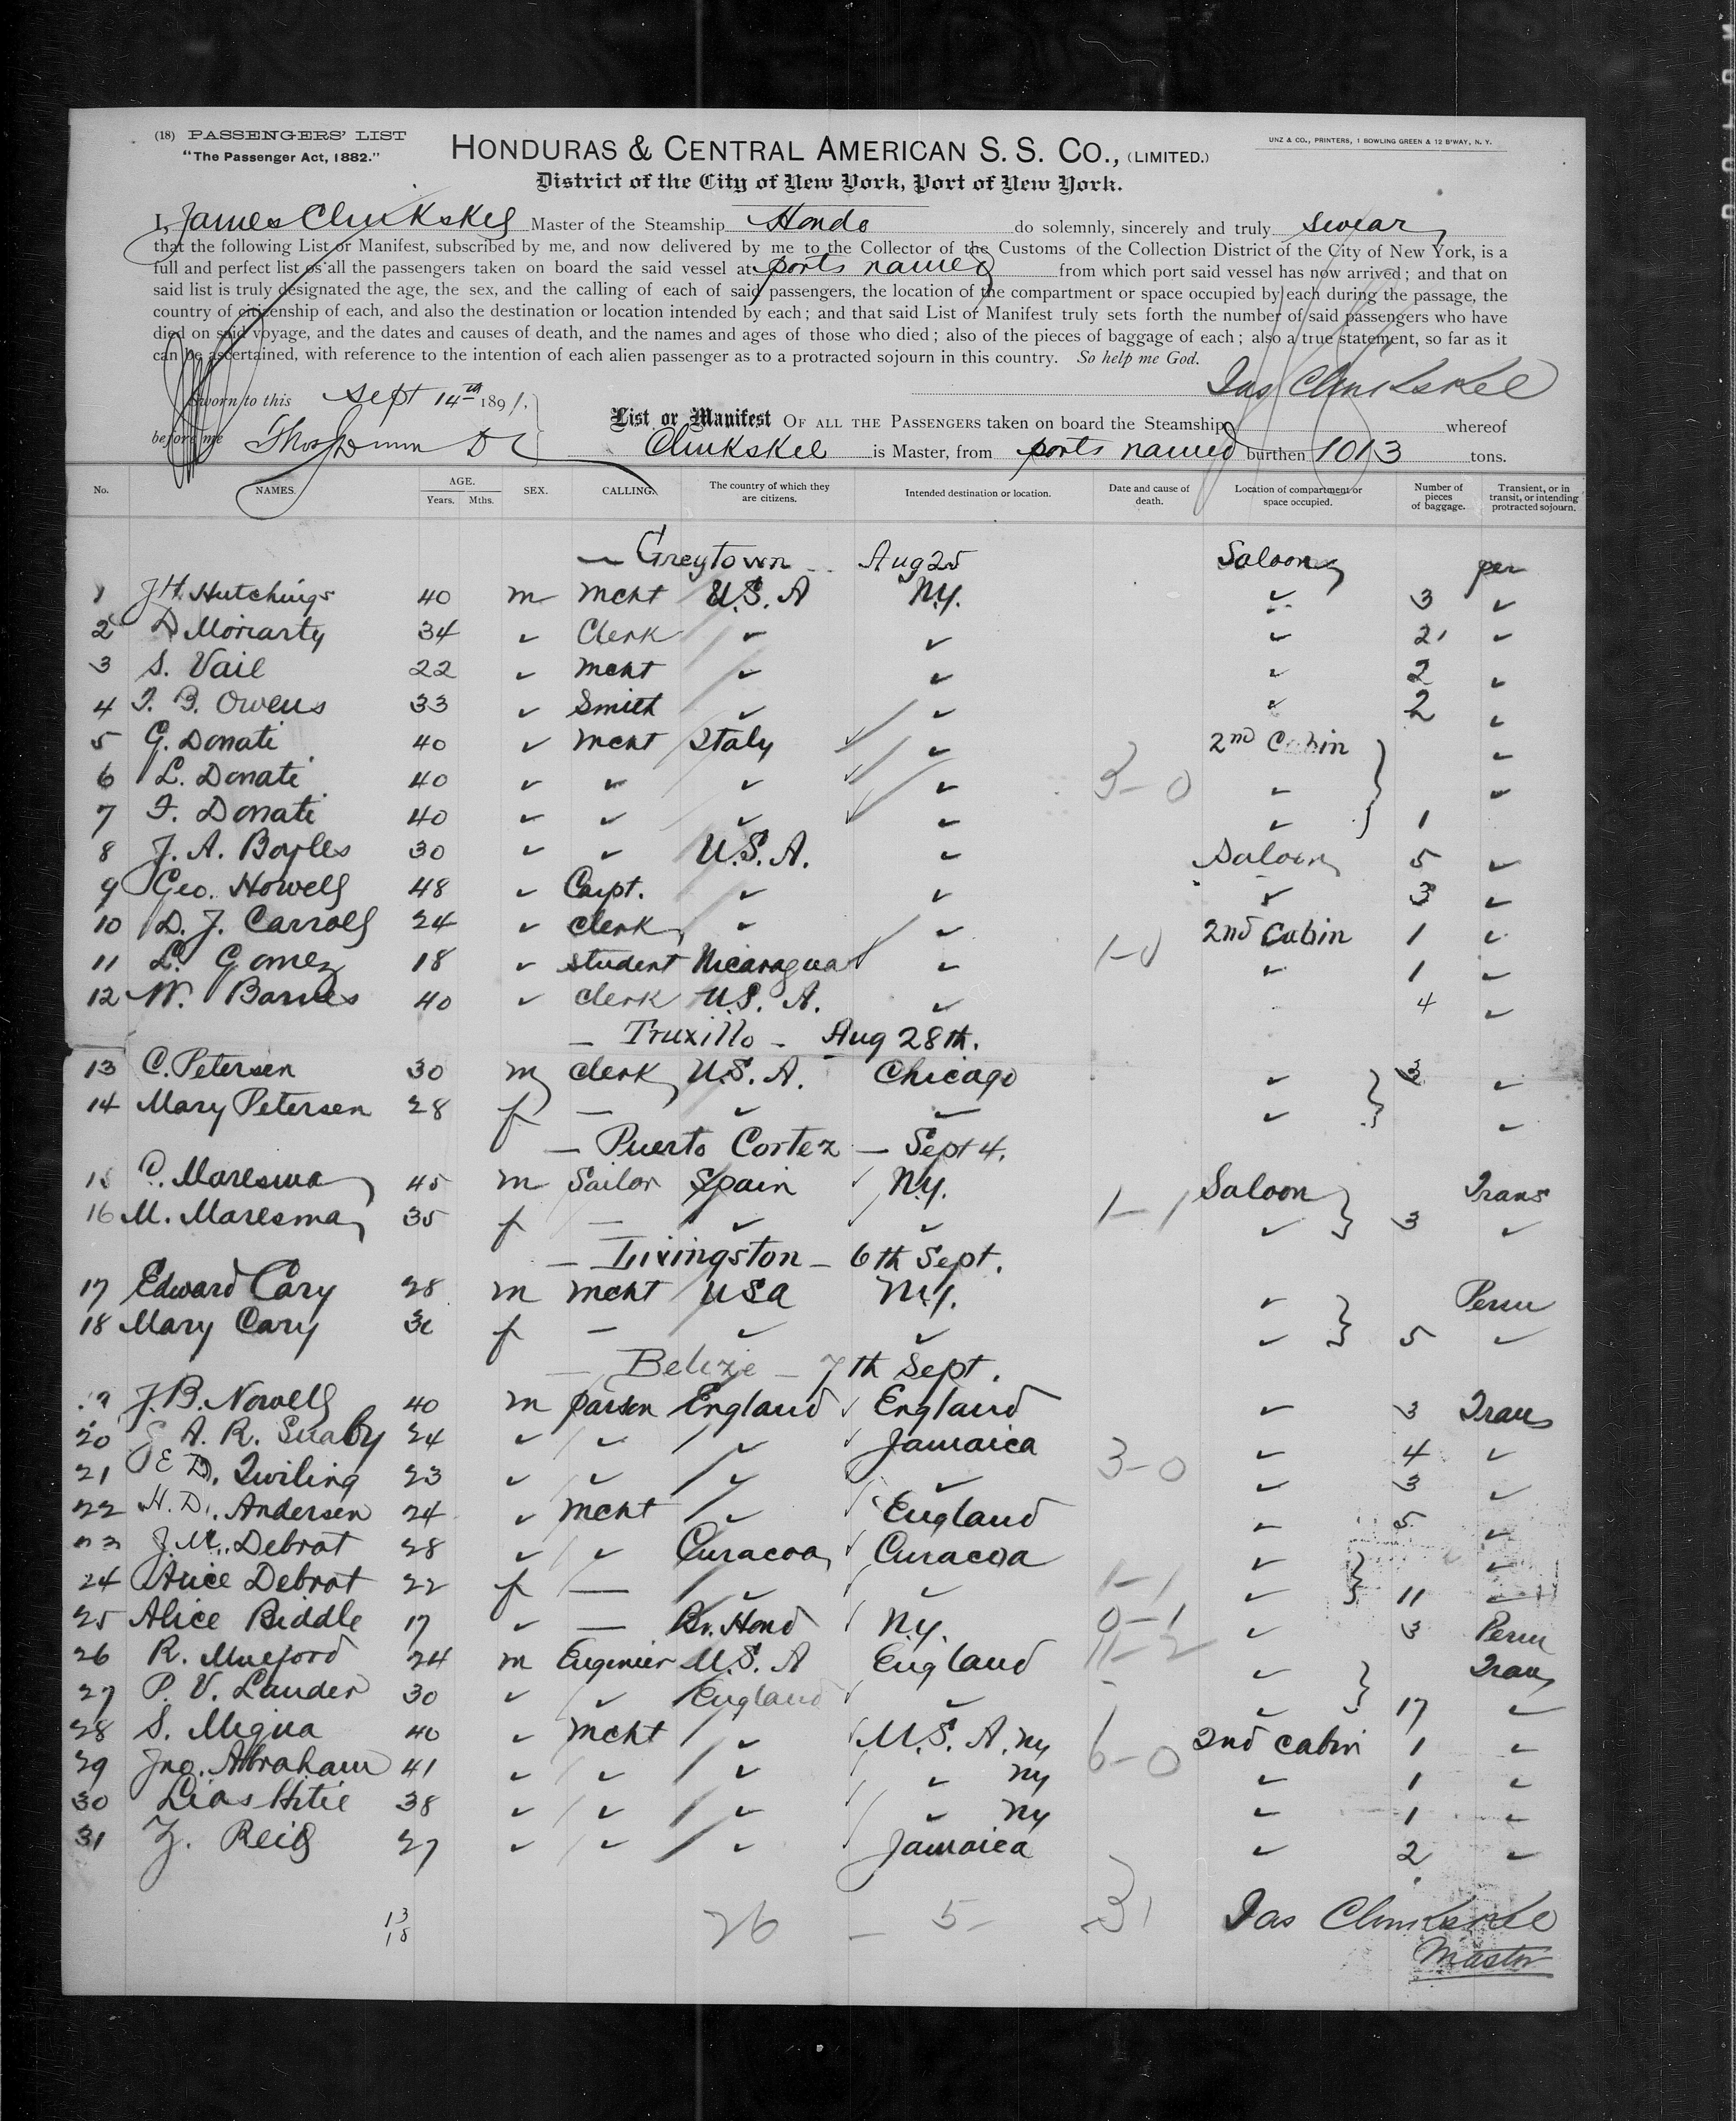 (18) PASSENGERS' LIST
"The Passenger Act, 1882."
HONDURAS & CENTRAL AMERICAN S. S. CO., (LIMITED.)
UNZ & CO., PRINTERS, 1 BOWLING GREEN & 12 B'WAY, N. Y.
District of the City of New York, Port of New York.
I, James Clinkskel Master of the Steamship Hondo do solemnly, sincerely and truly swear
that the following List or Manifest, subscribed by me, and now delivered by me to the Collector of the Customs of the Collection District of the City of New York, is a
full and perfect list of all the passengers taken on board the said vessel at ports named from which port said vessel has now arrived; and that on
said list is truly designated the age, the sex, and the calling of each of said passengers, the location of the compartment or space occupied by each during the passage, the
country of citizenship of each, and also the destination or location intended by each; and that said List or Manifest truly sets forth the number of said passengers who have
died on said voyage, and the dates and causes of death, and the names and ages of those who died; also of the pieces of baggage of each; also a true statement, so far as it
can be ascertained, with reference to the intention of each alien passenger as to a protracted sojourn in this country. So help me God.
Jas Clinkskel
Sworn to this Sept 14th 1891.
before me Thos Dunn
List or Manifest OF ALL THE PASSENGERS taken on board the Steamship whereof
Clinkskel is Master, from ports named burthen 1013 tons.
No. NAMES. AGE. Years. Mths. SEX. CALLING. The country of which they are citizens. Intended destination or location. Date and cause of death. Location of compartment or space occupied. Number of pieces of baggage. Transient, or in transit, or intending protracted sojourn.
— Greytown — Aug 25 Saloon per
1 J H. Hutchings 40 m mcht U.S. A N.Y. ✓ 3 ✓
2 D Moriarty 34 ✓ Clerk ✓ ✓ ✓ 2 ✓
3 S. Vail 22 ✓ mcht ✓ ✓ ✓ 2 ✓
4 T. B. Owens 33 ✓ Smith ✓ ✓ ✓ 2 ✓
5 G. Donati 40 ✓ mcht Italy ✓ 2nd Cabin ✓
6 L. Donati 40 ✓ ✓ ✓ ✓ 3-0 ✓ ✓
7 F. Donati 40 ✓ ✓ ✓ ✓ ✓ 1
8 J. A. Boyles 30 ✓ ✓ U.S. A. ✓ Saloon 5 ✓
9 Geo. Howell 48 ✓ Capt. ✓ ✓ ✓ 3 ✓
10 D. J. Carroll 24 ✓ clerk ✓ ✓ 2nd Cabin 1 ✓
11 L. Gomez 18 ✓ student Nicaragua ✓ 1-0 ✓ 1 ✓
12 W. Barnes 40 ✓ clerk U.S. A. ✓ 4 ✓
— Truxillo — Aug 28th.
13 C. Petersen 30 m clerk U.S. A. Chicago ✓ 3 ✓
14 Mary Petersen 28 f — ✓ ✓ ✓ ✓
— Puerto Cortez — Sept 4.
15 C. Maresma 45 m Sailor Spain N.Y. 1-1 Saloon Trans
16 M. Maresma 35 f — ✓ ✓ ✓ 3 ✓
— Livingston — 6th Sept.
17 Edward Cary 28 m mcht USA N.Y. ✓ Perm
18 Mary Cary f — ✓ ✓ ✓ 5 ✓
— Belize — 7th Sept.
19 J. B. Nowell 40 m parson England England ✓ 3 Trans
20 A. R. 24 ✓ ✓ ✓ Jamaica ✓ 4 ✓
21 E D. Twiling 23 ✓ ✓ ✓ ✓ 3-0 ✓ 3 ✓
22 H. D. Andersen 24 ✓ mcht ✓ England ✓ 5 ✓
23 J. M. Debrot 28 ✓ ✓ Curacoa Curacoa ✓ ✓
24 Alice Debrot 22 f — ✓ ✓ 1-1 ✓ 11
25 Alice Biddle 17 ✓ — Br. Hond N.Y. 0-1 ✓ 3 Perm
26 R. Mulford 24 m Engineer U.S. A England 11-2 ✓ Trans
27 P. V. Lauder 30 ✓ ✓ England ✓ ✓ 17 ✓
28 S. Megua 40 ✓ mcht ✓ U.S. A. ny 2nd cabin 1 ✓
29 Jno. Abraham 41 ✓ ✓ ✓ ✓ ny 6-0 ✓ 1 ✓
30 Lias Hitie 38 ✓ ✓ ✓ ✓ ny ✓ 1 ✓
31 Z. Reid 27 ✓ ✓ ✓ Jamaica ✓ 2 ✓
13
18
26 — 5 — 31
Jas Clinkskel
Master